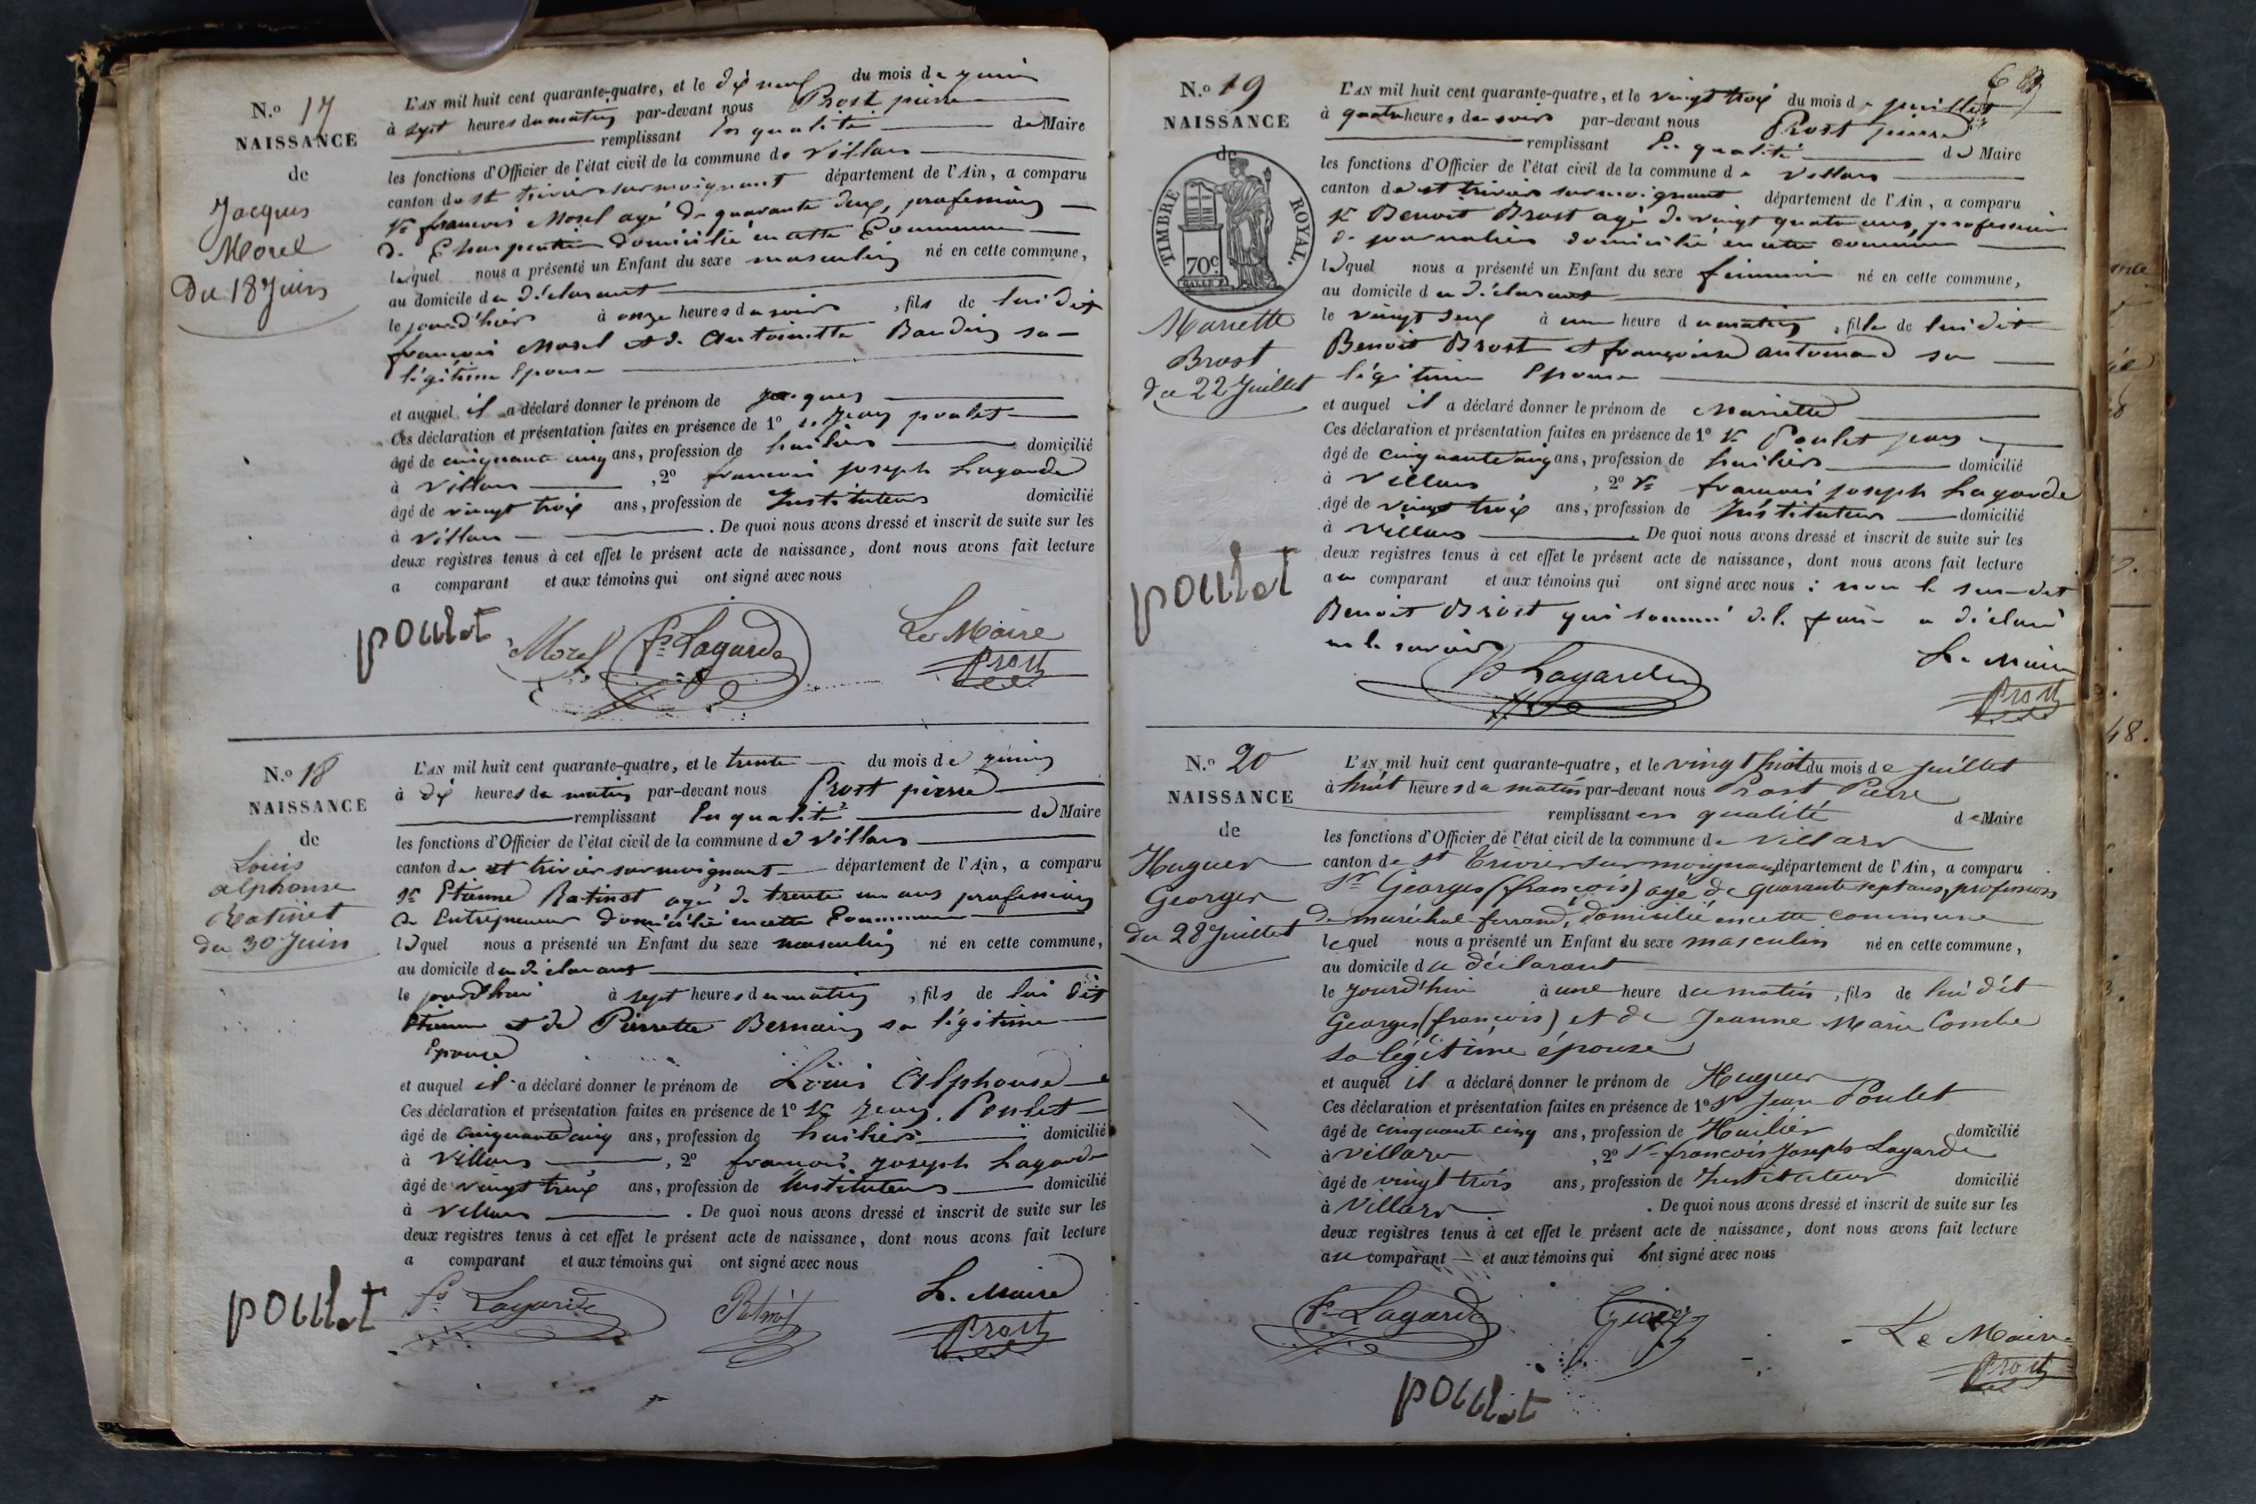 N.o 17
NAISSANCE
de
Jacques
Morel
Du 18 Juin
L'AN mil huit cent quarante-quatre, et le dix neuf du mois de juin
à sept heures du matin par-devant nous Prost pierre
remplissant En qualité de Maire
les fonctions d'Officier de l'état civil de la commune de Villars
canton de st trivier sur moignant département de l'Ain, a comparu
sr françois Morel agé de quarante deux, profession
de Charpentier domicilié en cette Commune
lequel nous a présenté un Enfant du sexe masculin né en cette commune,
au domicile du déclarant
le jourd'hier à onze heures du soir, fils de lui dit
françois Morel et de Antoinette Baudin sa
légitime Epouse
et auquel il a déclaré donner le prénom de Jacques
Ces déclaration et présentation faites en présence de 1o sr Jean poulet
âgé de cinquante cinq ans, profession de huilier domicilié
à Villars, 2o francois joseph Lagarde
âgé de vingt trois ans, profession de Instituteur domicilié
à Villars. De quoi nous avons dressé et inscrit de suite sur les
deux registres tenus à cet effet le présent acte de naissance, dont nous avons fait lecture
a comparant et aux témoins qui ont signé avec nous
poulet Morel fs Lagarde Le Maire
Prost
N.o 18
NAISSANCE
de
Louis
alphonse
Ratinet
du 30 Juin
L'AN mil huit cent quarante-quatre, et le trente du mois de juin
à dix heures du matin par-devant nous Prost pierre
remplissant En qualité de Maire
les fonctions d'Officier de l'état civil de la commune de Villars
canton de st trivier sur moignant département de l'Ain, a comparu
sr Etienne Ratinet agé de trente un ans profession
de Entrepreneur domicilié en cette Commune
lequel nous a présenté un Enfant du sexe masculin né en cette commune,
au domicile du déclarant
le jourd'hui à sept heures du matin, fils de lui dit
Etienne et de Pierrette Bernain sa légitime
Epouse
et auquel il a déclaré donner le prénom de Louis Alphonse
Ces déclaration et présentation faites en présence de 1o sr Jean Poulet
âgé de cinquante cinq ans, profession de huilier domicilié
à Villars, 2o francois joseph Lagarde
âgé de vingt trois ans, profession de Instituteur domicilié
à Villars. De quoi nous avons dressé et inscrit de suite sur les
deux registres tenus à cet effet le présent acte de naissance, dont nous avons fait lecture
a comparant et aux témoins qui ont signé avec nous
poulet fs Lagarde Ratinet Le Maire
Prost
N.o 19
NAISSANCE
de
TIMBRE ROYAL.
70c
Mariette
Brost
du 22 Juillet
L'AN mil huit cent quarante-quatre, et le vingt trois du mois de juillet
à quatre heures du soir par-devant nous Prost pierre
remplissant En qualité de Maire
les fonctions d'Officier de l'état civil de la commune de Villars
canton de st trivier sur moignant département de l'Ain, a comparu
sr Benoit Brost agé de vingt quatre ans, profession
de journalier domicilié en cette commune
lequel nous a présenté un Enfant du sexe féminin né en cette commune,
au domicile du déclarant
le vingt deux à une heure du matin, fille de lui dit
Benoit Brost et françoise antoinard sa
légitime Epouse
et auquel il a déclaré donner le prénom de Mariette
Ces déclaration et présentation faites en présence de 1o sr Poulet jean
âgé de cinquante cinq ans, profession de huilier domicilié
à Villars, 2o sr francois joseph Lagarde
âgé de vingt trois ans, profession de Instituteur domicilié
à Villars. De quoi nous avons dressé et inscrit de suite sur les
deux registres tenus à cet effet le présent acte de naissance, dont nous avons fait lecture
au comparant et aux témoins qui ont signé avec nous : non le sus-dit
Benoit Brost qui sommé de le faire a déclaré
ne le savoir
poulet fs Lagarde Le Maire
Prost
N.o 20
NAISSANCE
de
Hugues
Georges
du 28 Juillet
L'AN mil huit cent quarante-quatre, et le vingt huit du mois de Juillet
à huit heures du matin par-devant nous Prost Pierre
remplissant en qualité de Maire
les fonctions d'Officier de l'état civil de la commune de Villars
canton de st Trivier sur moignant département de l'Ain, a comparu
Sr Georges (françois) agé de quarante sept ans, profession
de maréchal ferrand, domicilié en cette commune
lequel nous a présenté un Enfant du sexe masculin né en cette commune,
au domicile du déclarant
le jourd'hui à une heure du matin, fils de lui dit
Georges (françois) et de Jeanne Marie Combe
sa légitime épouse
et auquel il a déclaré donner le prénom de Hugues
Ces déclaration et présentation faites en présence de 1o Sr Jean Poulet
âgé de cinquante cinq ans, profession de Huilier domicilié
à Villars, 2o Sr francois Joseph Lagarde
âgé de vingt trois ans, profession de Instituteur domicilié
à Villars. De quoi nous avons dressé et inscrit de suite sur les
deux registres tenus à cet effet le présent acte de naissance, dont nous avons fait lecture
au comparant et aux témoins qui ont signé avec nous
fs Lagarde Le Maire
Prost
poulet